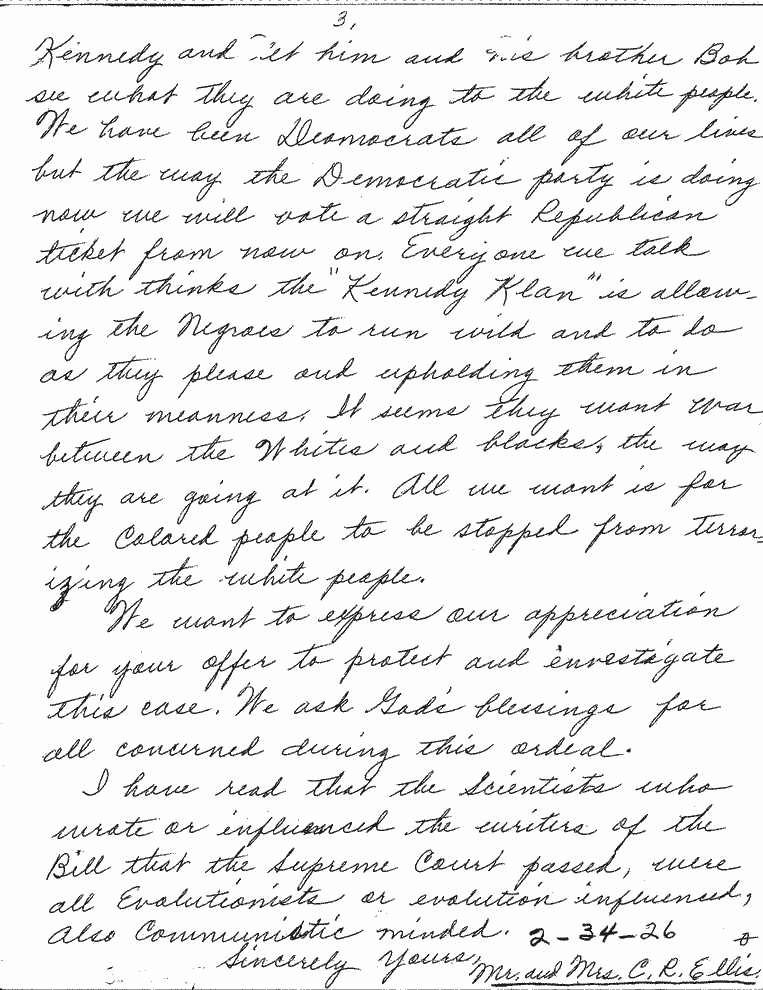 3,
Kennedy and let him and his brother Bob
see what they are doing to the white people.
We have been Deomocrats all of our lives
but the way the Democratic party is doing
now we will vote a straight Republican
ticket from now on. Everyone we talk
with thinks the "Kennedy Klan" is allow-
ing the Negroes to run wild and to do
as they please and upholding them in
their meanness. It seems they want war
between the Whites and blacks, the way
they are going at it. All we want is for
the Colored people to be stopped from terror-
izing the white people.
We want to express our appreciation
for your offer to protect and envestigate
this case. We ask God's blessings for
all concerned during this ordeal.
I have read that the Scientists who
wrote or influenced the writers of the
Bill that the Supreme Court passed, were
all Evolutionists or evolution influenced,
Also Communistic minded. 2-34-26
Sincerely Yours,
Mr. and Mrs. C. R. Ellis.